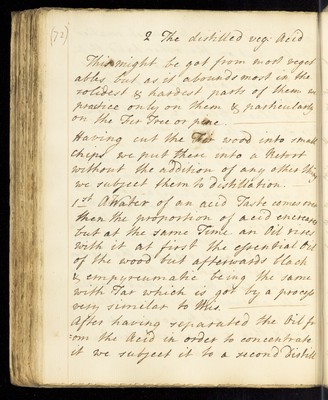 (72)
2 The distilled veg: Acid
This might be got from most veget
ables but as it abounds most in the
solidest & hardest parts of them we
practice only on them & particularly
on the Fir Tree or pine
Having cut the Fir wood into small
chips we put these into a Retort
without the addition of any other thing
we subject them to distillation.
1st A Water of an acid Taste comes over
than the proportion of acid increases
but at the same Time an Oil rises
with it at first the essential Oil
of the wood but afterwards black
& empyreumatic being the same
with Tar which is got by a process
very similar to this.
After having separated the Oil fr
om the Acid in order to concentrate
it we subject it to a second Distill